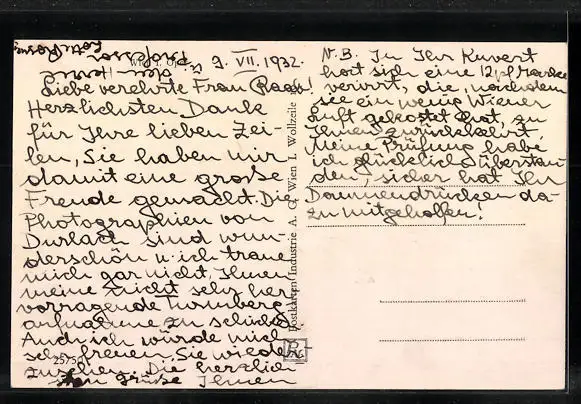 Wien, 7. VII. 1932.
Liebe verehrte Frau
Herzlichsten Dank
für Ihre lieben Zei-
len, Sie haben mir
damit eine große
Freude gemacht. Die
Photographien von
Durlach sind wun-
derschön u. ich traue
mich gar nicht, Ihnen
meine nicht sehr her-
vorragende Turmberg-
aufnahme zu schicken.
Auch ich würde mich
sehr freuen, Sie wieder
zu sehen. Die herzlich-
sten Grüße Ihnen
N.B. In Ihr Kuvert
hat sich eine 12 pf Marke
verirrt, die, nachdem
sie ein wenig Wiener
Luft gekostet hat, zu
Ihnen zurückkehrt.
Meine Prüfung habe
ich glücklich überstan-
den, sicher hat Ihr
Daumendrücken da-
zu mitgeholfen!
Postkarten-Industrie A. G., Wien I. Wollzeile